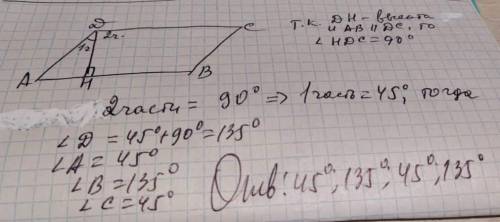 D
C
2ч.
1ч
A
H
B
т.к. DH - высота
и AB || DC, то
∠HDC = 90°
2части = 90° => 1часть = 45°, тогда
∠D = 45° + 90° = 135°
∠A = 45°
∠B = 135°
∠C = 45°
Отв: 45°; 135°; 45°; 135°